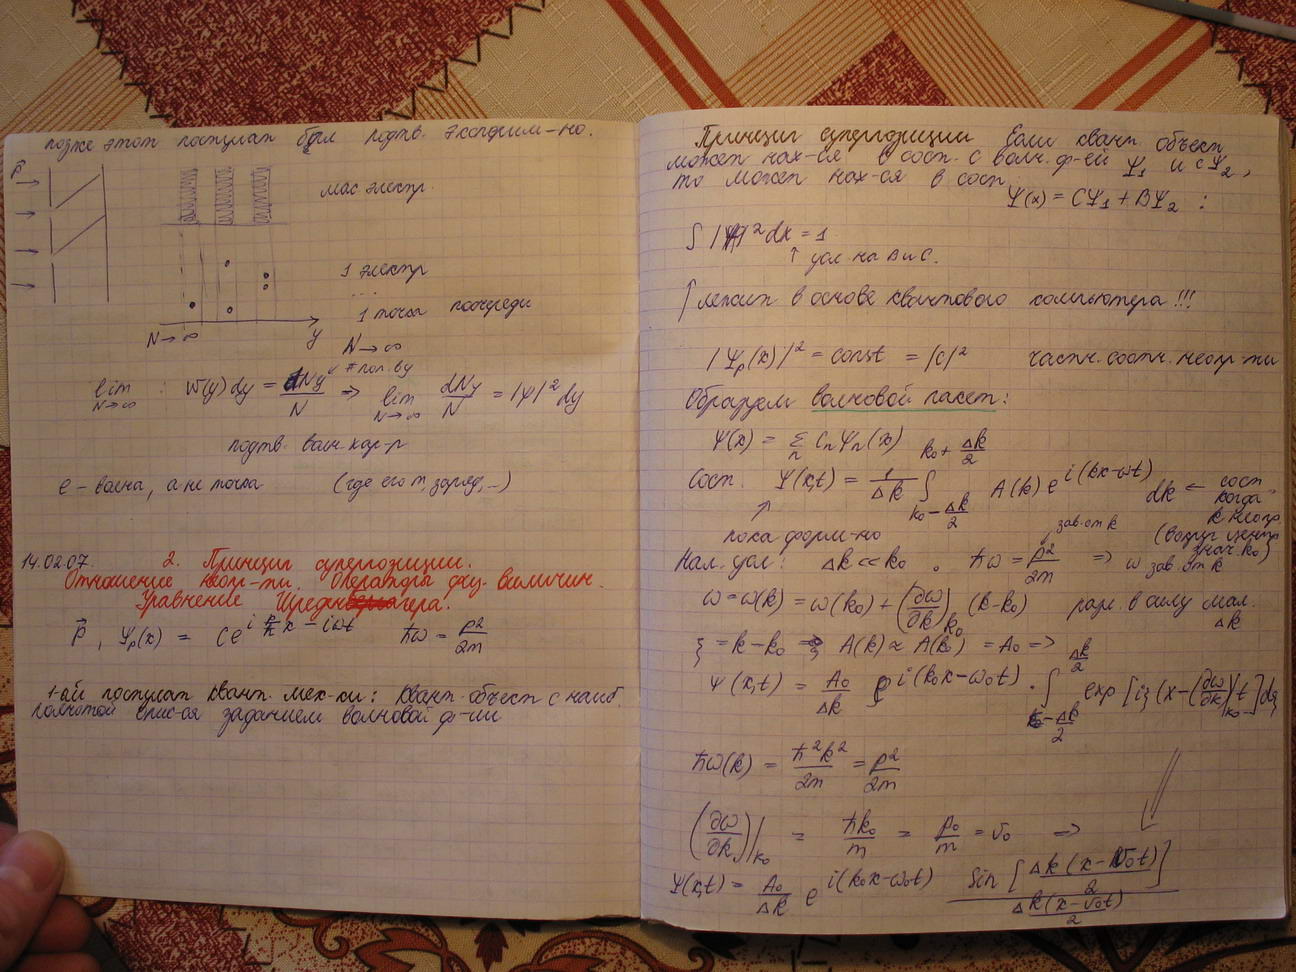 позже этот постулат был подтв. эксперим-но.
p⃗
мас электр.
1 электр
...
1 точка поочереди
N→∞ y N→∞
lim N→∞ : W(y)dy = dNy/N ⇒ lim N→∞ dNy/N = |Ψ|² dy
# поп. в y
подтв. волн. хар-р
e – волна, а не точка (где его m, заряд, ...)
14.02.07. 2. Принцип суперпозиции.
Отношение неопр-ти. Операторы физ. величин.
Уравнение Шредингера.
p⃗, Ψp(x) = C e^{i p/ħ x − iωt} ħω = p²/2m
1-ый постулат квант. мех-ки: квант. объект с наиб.
полнотой опис-ся заданием волновой ф-ии
Принцип суперпозиции Если квант. объект
может нах-ся в сост. с волн. ф-ей Ψ1 и с Ψ2,
то может нах-ся в сост.
Ψ(x) = CΨ1 + BΨ2 :
∫ |Ψ|² dx = 1
↑ усл. на B и C.
↑ лежит в основе квантового компьютера !!!
|Ψp(x)|² = const = |C|² частн. соотн. неопр-ти
Образуем волновой пакет:
Ψ(x) = Σn Cn Ψn(x)
Сост. Ψ(x,t) = 1/Δk ∫_{k0−Δk/2}^{k0+Δk/2} A(k) e^{i(kx−ωt)} dk ← сост когда k неопр.
(вокруг центр знач. k0)
↗ пока форм-но
зав. от k
Нал. усл: Δk << k0. ħω = p²/2m ⇒ ω зав. от k
ω = ω(k) = ω(k0) + (∂ω/∂k)k0 (k−k0) разл. в силу мал. Δk
ξ = k−k0 ⇒ A(k) ≈ A(k0) = A0 ⇒
Ψ(x,t) = A0/Δk e^{i(k0x−ω0t)} · ∫_{−Δk/2}^{Δk/2} exp[iξ(x−(∂ω/∂k)|k0 t)]dξ
ħω(k) = ħ²k²/2m = p²/2m
(∂ω/∂k)|k0 = ħk0/m = p0/m = v0 ⇒
Ψ(x,t) = A0/Δk e^{i(k0x−ω0t)} sin[Δk(x−v0t)/2] / Δk(x−v0t)/2